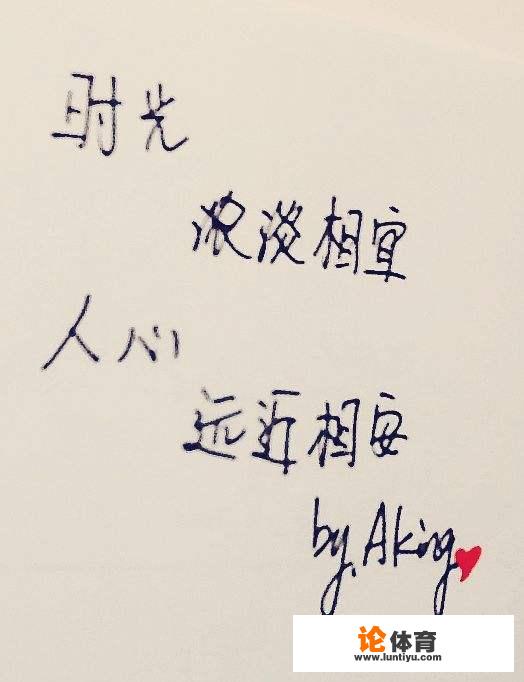 时光
浓淡相宜
人心
远近相安
by.Aking
论体育
www.luntiyu.com